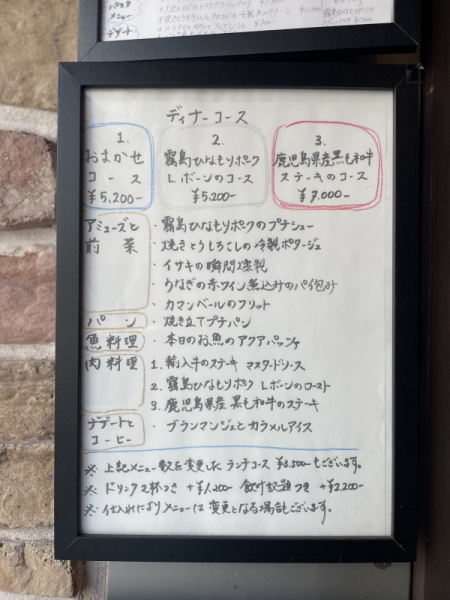 メニュー
デザート
ディナーコース
1.
おまかせ
コース
¥5,200-
2.
霧島ひなもりポーク
Lボーンのコース
¥5,200-
3.
鹿児島県産黒毛和牛
ステーキのコース
アミューズと
前菜
・霧島ひなもりポークのプチシュー
・焼きとうもろこしの冷製ポタージュ
・イサキの瞬間燻製
・うなぎの赤ワイン煮込みのパイ包み
・カマンベールのフリット
パン
・焼き立てプチパン
魚料理
・本日のお魚のアクアパッツァ
肉料理
1. 輸入牛のステーキ マスタードソース
2. 霧島ひなもりポーク Lボーンのロースト
3. 鹿児島県産 黒毛和牛のステーキ
デザートと
コーヒー
・ブランマンジェとカラメルアイス
※ 上記メニュー数を変更した ランチコース ¥3,500-もございます。
※ ドリンク2杯つき +¥1,200- 飲み放題つき +¥2,200-
※ 仕入れによりメニューは変更となる場合もございます。